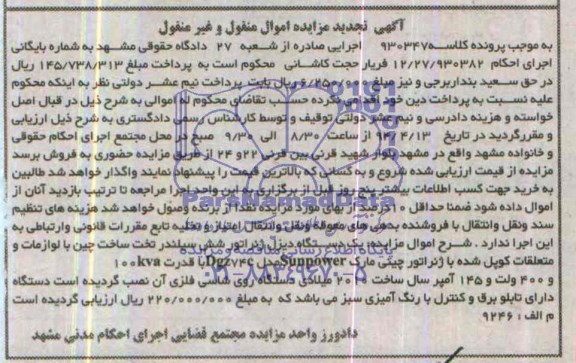 آگهی تجدید مزایده اموال منقول و غیر منقول
به موجب پرونده کلاسه ۹۳۰۳۴۷ اجرایی صادره از شعبه ۲۷ دادگاه حقوقی مشهد به شماره بایگانی
اجرای احکام ۱۲/۲۷/۹۳۰۳۸۲ فریار حجت کاشانی محکوم است به پرداخت مبلغ ۱۴۵/۷۳۸/۳۱۳ ریال
در حق سعید بنداربرجی و نیز مبلغ ریال بابت پرداخت نیم عشر دولتی نظر به اینکه محکوم
علیه نسبت به پرداخت دین خود اقدامی نکرده حسب تقاضای محکوم له اموالی به شرح ذیل در قبال اصل
خواسته و هزینه دادرسی و نیم عشر دولتی توقیف و توسط کارشناس رسمی دادگستری به شرح ذیل ارزیابی
و مقرر گردید در تاریخ ۹۴/۴/۱۳ از ساعت ۸/۳۰ الی ۹/۳۰ صبح در محل مجتمع اجرای احکام حقوقی
و خانواده مشهد واقع در مشهد بلوار شهید قرنی بین قرنی ۲۲ و ۲۴ از طریق مزایده حضوری به فروش برسد
مزایده از قیمت ارزیابی شده شروع و به کسانی که بالاترین قیمت را پیشنهاد نمایند واگذار خواهد شد طالبین
به خرید جهت کسب اطلاعات بیشتر پنج روز قبل از برگزاری به این واحد اجرا مراجعه تا ترتیب بازدید آنان از
اموال داده شود ضمنا حداقل ۱۰ درصد از بهای مورد مزایده نقدا از برنده وصول خواهد شد هزینه های تنظیم
سند ونقل وانتقال با فروشنده بدهی های معوقه ونقل وانتقال امتیاز و تخلیه تابع مقررات قانونی وارتباطی به
این اجرا ندارد . شرح اموال مزایده: یک دستگاه دیزل ژنراتور شش سیلندر تخت ساخت چین با لوازمات و
متعلقات کوپل شده با ژنراتور چینی مارک Sunpower مدل با قدرت ۱۰۰kva
و ۴۰۰ ولت و ۱۴۵ آمپر سال ساخت ۲۰۰۷ میلادی دستگاه روی شاسی فلزی آن نصب گردیده است دستگاه
دارای تابلو برق و کنترل با رنگ آمیزی سبز می باشد که به مبلغ ۲۲۰/۰۰۰/۰۰۰ ریال ارزیابی گردیده است
م الف : ۹۲۴۶
دادورز واحد مزایده مجتمع قضایی اجرای احکام مدنی مشهد
ParsNamadData
پایگاه اطلاع رسانی مناقصه و مزایده
۰۲۱-۸۸۳۴۹۶۷۰-۵